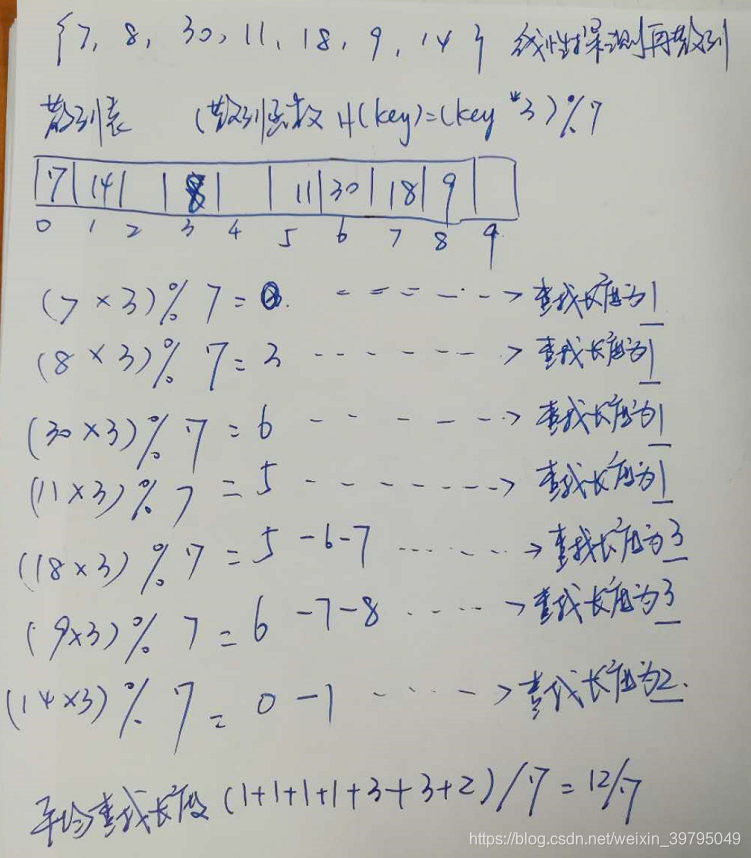 {7, 8, 30, 11, 18, 9, 14} 线性探测再散列
散列表 (散列函数 H(key)=(key*3)%7
7 14 8 11 30 18 9
0 1 2 3 4 5 6 7 8 9
(7×3)% 7 = 0. - - - - - -> 查找长度为1
(8×3)% 7 = 3 - - - - - - -> 查找长度为1
(30×3)% 7 = 6 - - - - - -> 查找长度为1
(11×3)% 7 = 5 - - - - - - - -> 查找长度为1
(18×3)% 7 = 5 -6-7 ......-> 查找长度为3
(9×3)% 7 = 6 -7-8 .....-> 查找长度为3
(14×3)% 7 = 0 -1 .....-> 查找长度为2.
平均查找长度 (1+1+1+1+3+3+2)/7 = 12/7
https://blog.csdn.net/weixin_39795049